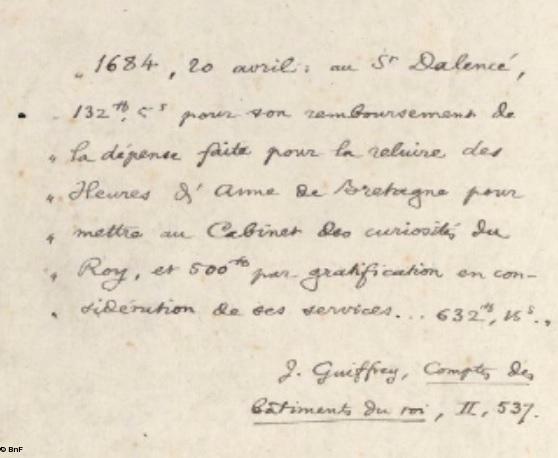 „ 1684, 20 avril : au Sr Dalencé,
„ 132 tt. 5 s pour son remboursement de
„ la dépense faite pour la reliure des
„ Heures d'Anne de Bretagne pour
„ mettre au Cabinet des curiosités du
„ Roy, et 500 tt par gratification en con-
„ sidération de ses services... 632 tt,
J. Guiffrey, Comptes des
bâtiments du roi, II, 537.
© BnF